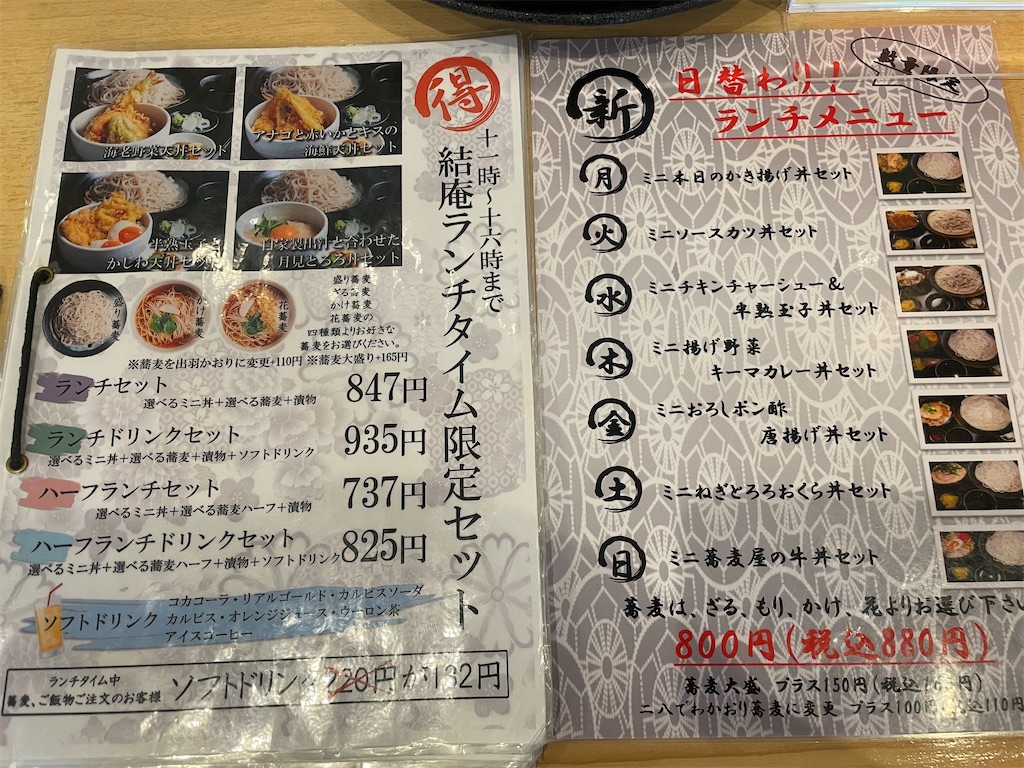 得
十一時～十六時まで
結庵ランチタイム限定セット
海老野菜天丼セット
アナゴと赤いかとキスの
海鮮天丼セット
半熟玉子と
かしわ天丼セット
自家製出汁と合わせた
月見とろろ丼セット
盛り蕎麦
かけ蕎麦
花蕎麦
盛り蕎麦
ざる蕎麦
かけ蕎麦
花蕎麦の
四種類よりお好きな
蕎麦をお選びください。
※蕎麦を出羽かおりに変更+110円 ※蕎麦大盛り+165円
ランチセット 847円
選べるミニ丼＋選べる蕎麦＋漬物
ランチドリンクセット 935円
選べるミニ丼＋選べる蕎麦＋漬物＋ソフトドリンク
ハーフランチセット 737円
選べるミニ丼＋選べる蕎麦ハーフ＋漬物
ハーフランチドリンクセット 825円
選べるミニ丼＋選べる蕎麦ハーフ＋漬物＋ソフトドリンク
ソフトドリンク
コカコーラ・リアルゴールド・カルピスソーダ
カルピス・オレンジジュース・ウーロン茶
アイスコーヒー
ランチタイム中
蕎麦、ご飯物ご注文のお客様
ソフトドリンク 220円が132円
新
日替わり！
ランチメニュー
月 ミニ本日のかき揚げ丼セット
火 ミニソースカツ丼セット
水 ミニチキンチャーシュー＆
半熟玉子丼セット
木 ミニ揚げ野菜
キーマカレー丼セット
金 ミニおろしポン酢
唐揚げ丼セット
土 ミニねぎとろろおくら丼セット
日 ミニ蕎麦屋の牛丼セット
蕎麦は、ざる、もり、かけ、花よりお選び下さい
800円(税込880円)
蕎麦大盛 プラス150円(税込165円)
二八でわかおり蕎麦に変更 プラス100円(税込110円